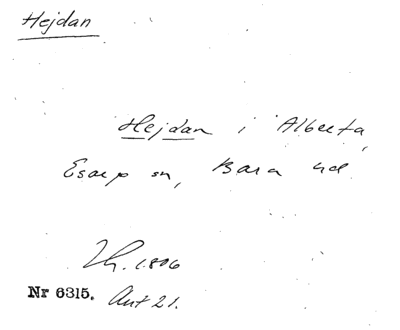 Hejdan
Hejdan i Alberta,
Esarp sn, Bara hd
1806
Nr 6315. Ant 21.